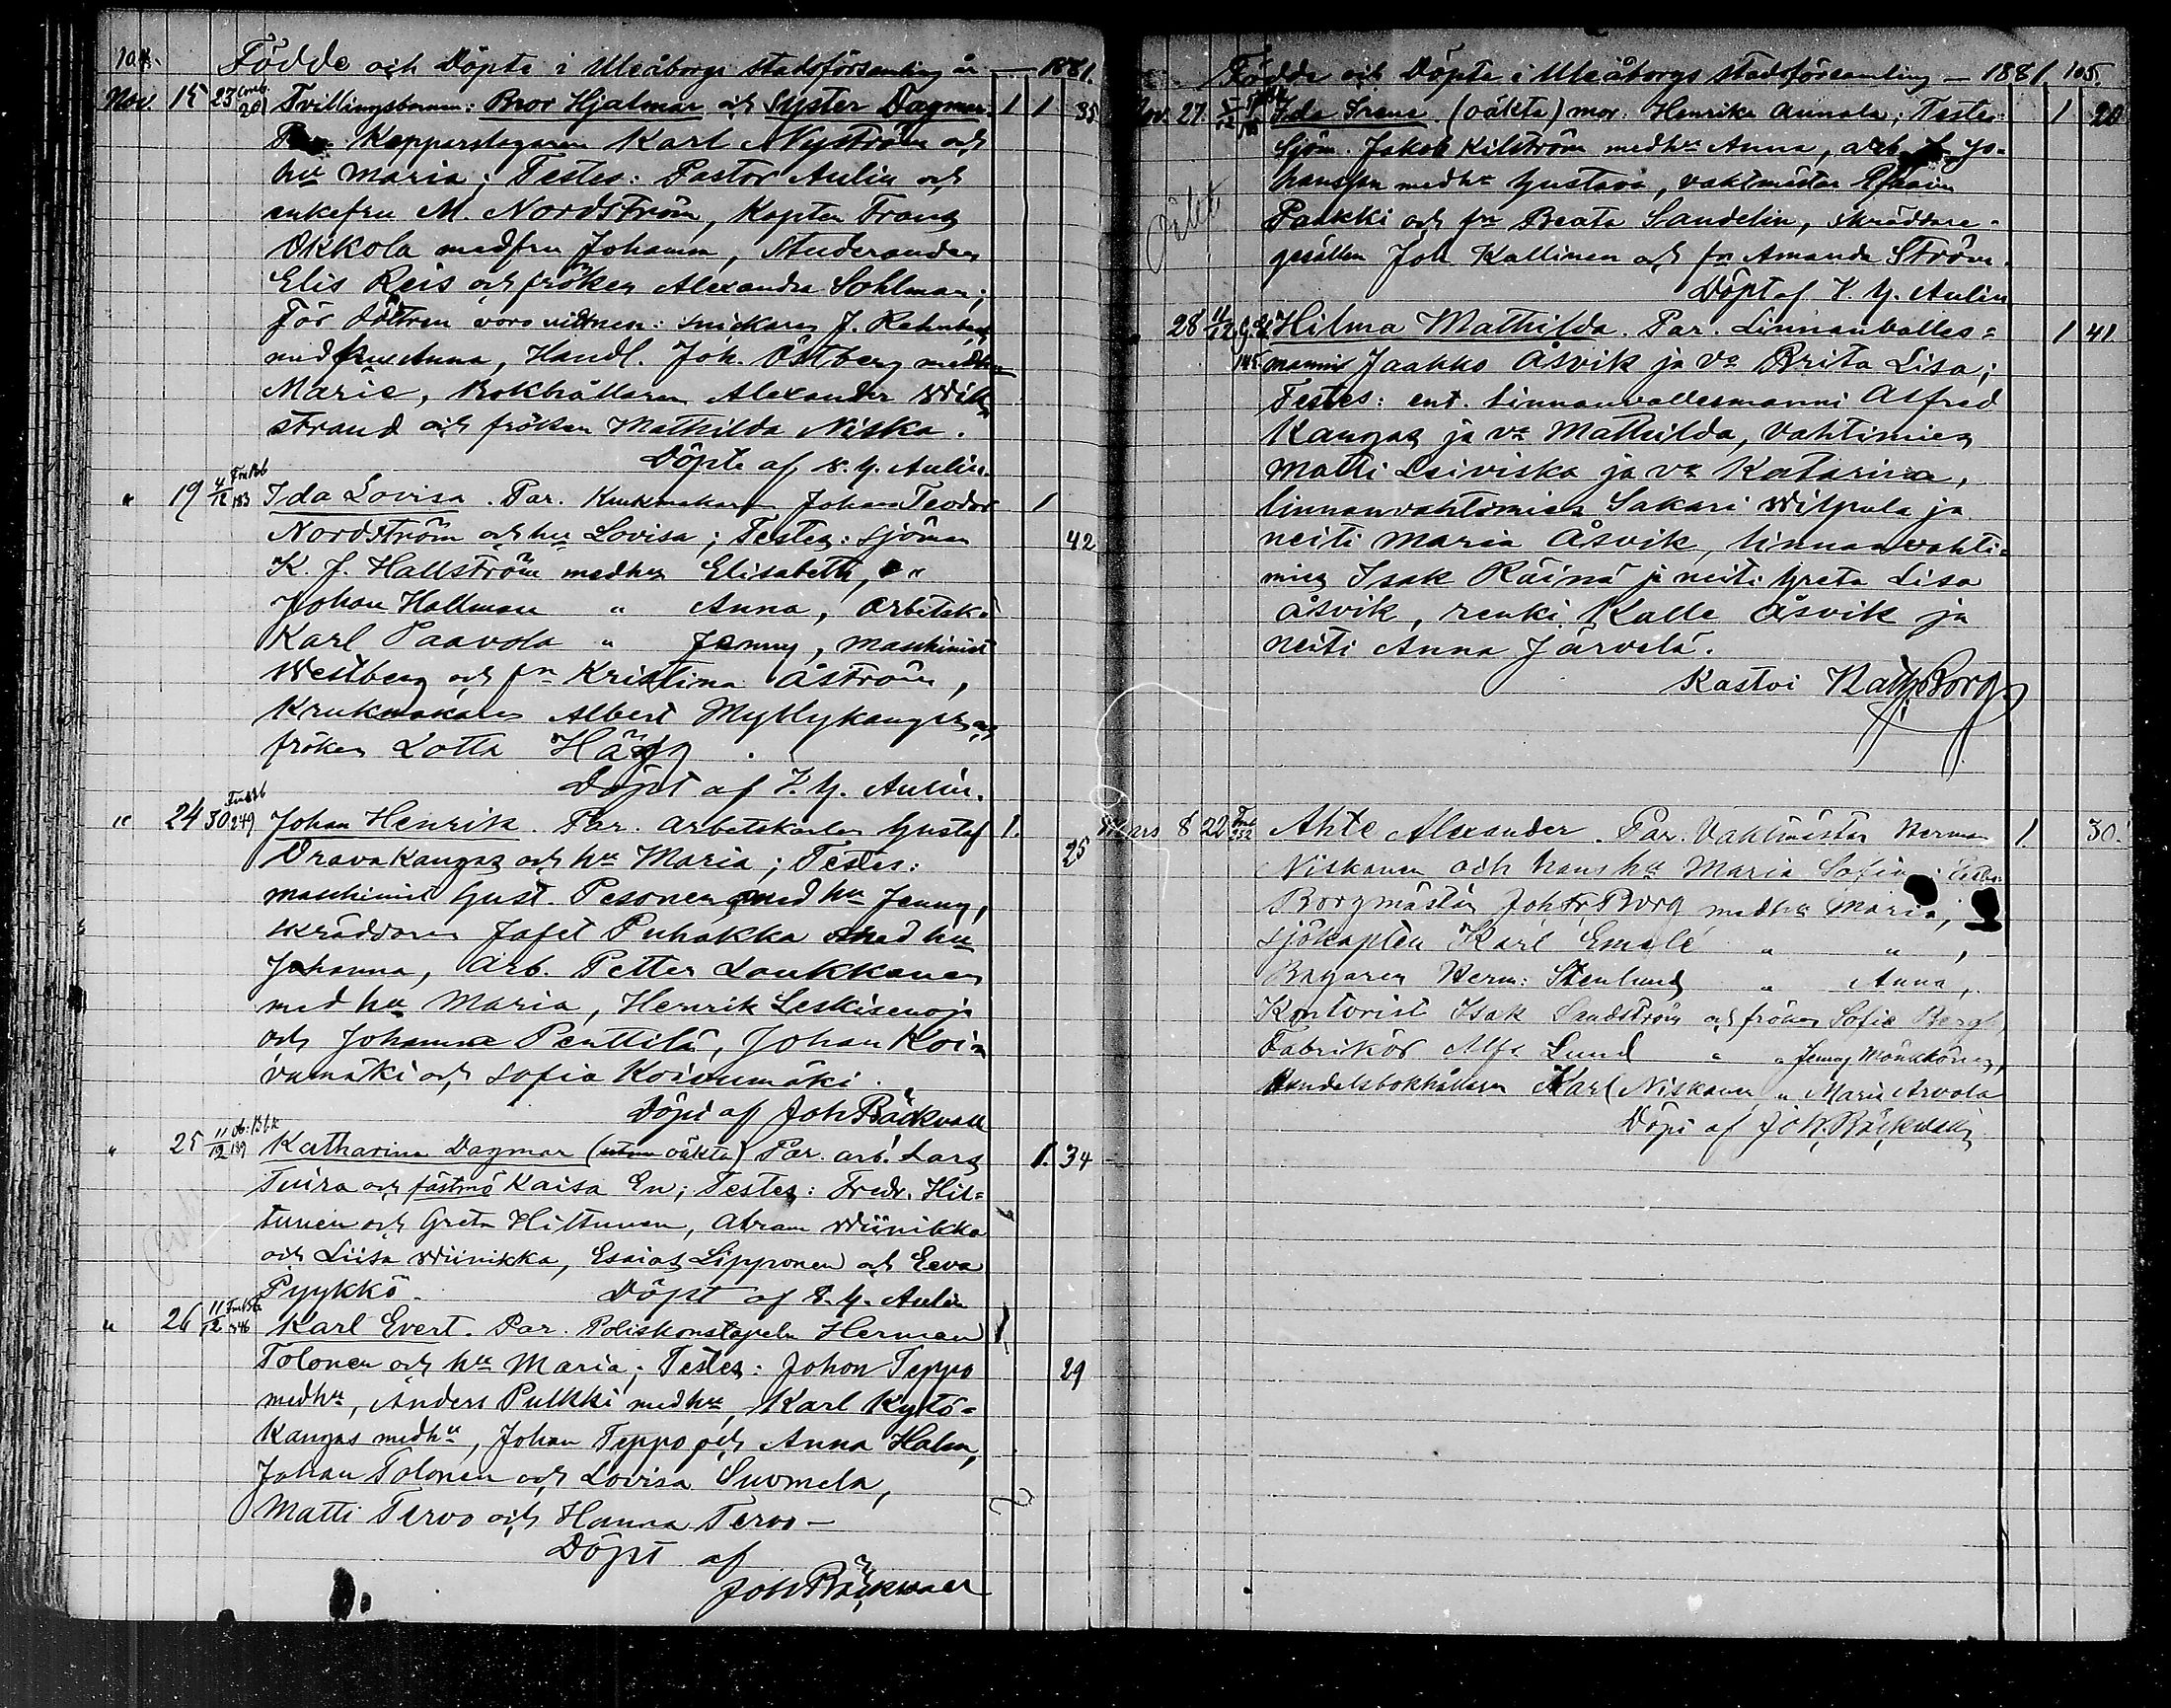 Födde och Döpte i Uleåborgs stadsförsamling år — 1881.
Nov. 15 23 20 Tvillingsbarnen: Bror Hjalmar och Syster Dagmar. 1 1 35
Kopparslagaren Karl Nyström och
hu Maria; Testes: Pastor Aulin och
enkefru M. Nordström, Kapten Frans
Okkola med fru Johanna, Studeranden
Elis Reis och fröken Alexandra Sohlman;
För dottren voro vittnen: snickaren J.
med frue Anna, Handl. Joh. Östberg med hu
Marie, Bokhållaren Alexander Wik
strand och fröken Mathilda Niska.
Döpte af V. Y. Aulin.
" 19 4/12 183 Ida Lovisa. Par. Krukmakaren Johan Teodor 1
Nordström och hu Lovisa; Testes: sjöman 42
K. J. Hallström med hu Elisabeth, "
Johan Hallman " Anna, arbetsk.
Karl Paavola " Jenny, maschinist
Westberg och fn Kristina Åström,
Krukmakaren Albert Myllykangas och
fröken Lotta Hägg.
Döpt af V. Y. Aulin.
" 24 30 249 Johan Henrik. Par. arbetskarlen Gustaf 1.
Oravakangas och hu Maria; Testes: 25
maschinist Gust. Pesonen med hu Jenny,
skräddaren Jafet Puhakka med hu
Johanna, arb. Petter Laukkanen
med hu Maria, Henrik Leskisenoja
och Johanna Penttilä, Johan Koi=
vumäki och Sofia Koivumäki.
Döpt af Joh Bäckvall
" 25 11/12 199 Katharina Dagmar (oäkta) Par. arb. Lars 1. 34
Tuira och fästmö Kaisa En; Testes: Fredr. Hil=
tunen och Greta Hiltunen, Abram Wiinikka
och Liisa Wiinikka, Esaias Lipponen och Eeva
Pyykkö. Döpt af V. Y. Aulin
" 26 11/12 Karl Evert. Par. Poliskonstapeln Herman 1
Tolonen och hu Maria; Testes: Johan Teppo 29
med hu, Anders Pulkki med hu, Karl Kytö=
kangas med hu, Johan Teppo och Anna Halm,
Johan Tolonen och Lovisa Suomela,
Matti Tervo och Hanna Tervo —
Döpt af
Joh Bäckvall
Födde och Döpte i Uleåborgs stadsförsamling — 1881 105.
Nov. 27. Ida Irene. (oäkta) mor. Henrika Annala; Testes: 1 20
Sjöm. Jakob Kilström med hu Anna, arb. Jo=
hansson med hu Gustava, vaktmästar Efraim
Paakki och fn Beata Sandelin, skräddare=
gesällen Joh Kallinen och fn Amanda Ström.
Döpt af V. Y. Aulin
" 28 11/12 145 Hilma Mathilda. Par. Linnanvalles= 1 41
manni Jaakko Åsvik ja vo Brita Lisa;
Testes: ent. linnanvallesmanni Alfred
Kangas ja vo Mathilda, Vahtimies
Matti Leiviska ja vo Katarina,
linnanvahtimies Sakari Wilpula ja
neiti Maria Åsvik, linnanvahti=
mies Isak Räinä ja neiti Greta Lisa
Åsvik, renki Kalle Åsvik ja
neiti Anna Järvelä.
Kastoi Borg
Mars 8 22 252 Ahte Alexander. Par. Vaktmästar Herman 1 30.
Niskanen och hans hu Maria Sofia; Testes:
Borgmästar Joh Fr. Borg med hu Maria,
Sjökapten Karl Emelé " " ,
Bagaren Herm: Stenlund " Anna,
Kontorist Isak Sandström och fröken Sofie Bergh,
Fabrikör Alfr. Lund " " Jenny Mönkkönen,
Handelsbokhållaren Karl Niskanen " Maria Arvola
Döpt af Joh. Bäckvall